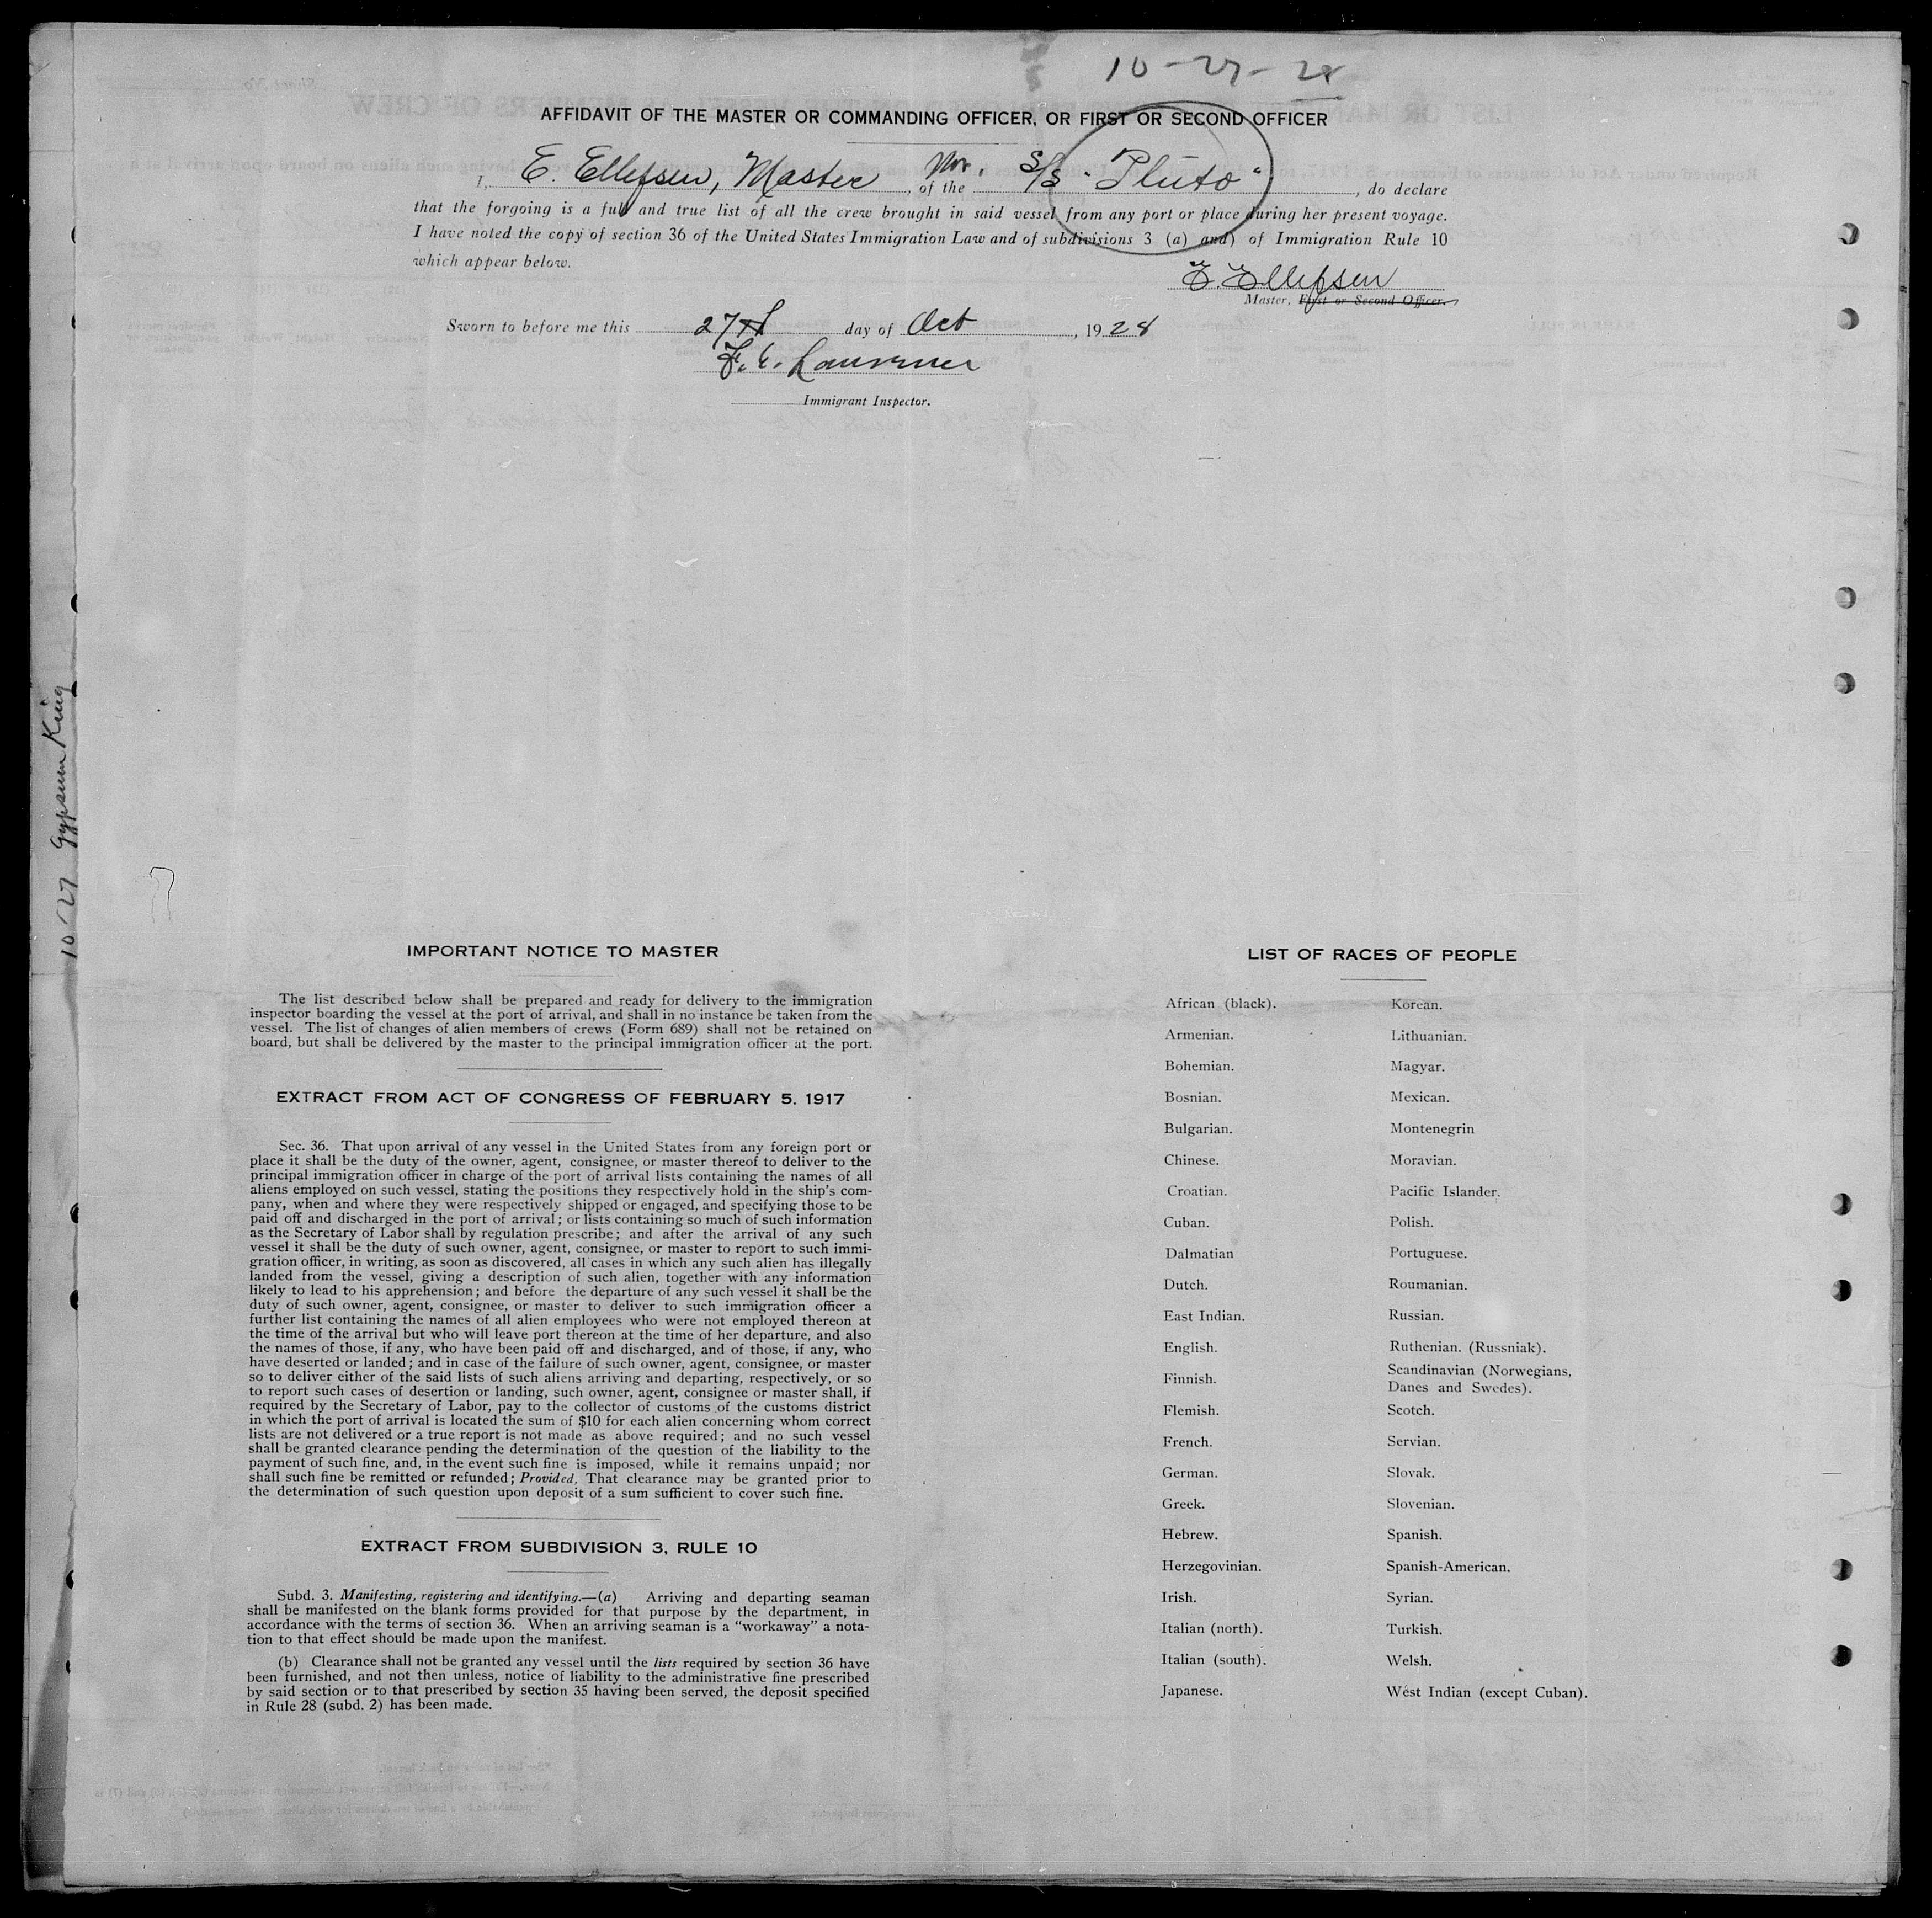 10-27-28
AFFIDAVIT OF THE MASTER OR COMMANDING OFFICER, OR FIRST OR SECOND OFFICER
I, E. Ellefsen, Master, of the Nor. S/S "Pluto", do declare
that the forgoing is a full and true list of all the crew brought in said vessel from any port or place during her present voyage.
I have noted the copy of section 36 of the United States Immigration Law and of subdivisions 3 (a) and) of Immigration Rule 10
which appear below.
E. Ellefsen
Master, First or Second Officer.
Sworn to before me this 27th day of Oct, 1928
F. E.
Immigrant Inspector.
10/27 Gypsum King
IMPORTANT NOTICE TO MASTER
The list described below shall be prepared and ready for delivery to the immigration
inspector boarding the vessel at the port of arrival, and shall in no instance be taken from the
vessel. The list of changes of alien members of crews (Form 689) shall not be retained on
board, but shall be delivered by the master to the principal immigration officer at the port.
EXTRACT FROM ACT OF CONGRESS OF FEBRUARY 5, 1917
Sec. 36. That upon arrival of any vessel in the United States from any foreign port or
place it shall be the duty of the owner, agent, consignee, or master thereof to deliver to the
principal immigration officer in charge of the port of arrival lists containing the names of all
aliens employed on such vessel, stating the positions they respectively hold in the ship's com-
pany, when and where they were respectively shipped or engaged, and specifying those to be
paid off and discharged in the port of arrival; or lists containing so much of such information
as the Secretary of Labor shall by regulation prescribe; and after the arrival of any such
vessel it shall be the duty of such owner, agent, consignee, or master to report to such immi-
gration officer, in writing, as soon as discovered, all cases in which any such alien has illegally
landed from the vessel, giving a description of such alien, together with any information
likely to lead to his apprehension; and before the departure of any such vessel it shall be the
duty of such owner, agent, consignee, or master to deliver to such immigration officer a
further list containing the names of all alien employees who were not employed thereon at
the time of the arrival but who will leave port thereon at the time of her departure, and also
the names of those, if any, who have been paid off and discharged, and of those, if any, who
have deserted or landed; and in case of the failure of such owner, agent, consignee, or master
so to deliver either of the said lists of such aliens arriving and departing, respectively, or so
to report such cases of desertion or landing, such owner, agent, consignee or master shall, if
required by the Secretary of Labor, pay to the collector of customs of the customs district
in which the port of arrival is located the sum of $10 for each alien concerning whom correct
lists are not delivered or a true report is not made as above required; and no such vessel
shall be granted clearance pending the determination of the question of the liability to the
payment of such fine, and, in the event such fine is imposed, while it remains unpaid; nor
shall such fine be remitted or refunded; Provided, That clearance may be granted prior to
the determination of such question upon deposit of a sum sufficient to cover such fine.
EXTRACT FROM SUBDIVISION 3, RULE 10
Subd. 3. Manifesting, registering and identifying.—(a) Arriving and departing seaman
shall be manifested on the blank forms provided for that purpose by the department, in
accordance with the terms of section 36. When an arriving seaman is a "workaway" a nota-
tion to that effect should be made upon the manifest.
(b) Clearance shall not be granted any vessel until the lists required by section 36 have
been furnished, and not then unless, notice of liability to the administrative fine prescribed
by said section or to that prescribed by section 35 having been served, the deposit specified
in Rule 28 (subd. 2) has been made.
LIST OF RACES OF PEOPLE
African (black).
Armenian.
Bohemian.
Bosnian.
Bulgarian.
Chinese.
Croatian.
Cuban.
Dalmatian
Dutch.
East Indian.
English.
Finnish.
Flemish.
French.
German.
Greek.
Hebrew.
Herzegovinian.
Irish.
Italian (north).
Italian (south).
Japanese.
Korean.
Lithuanian.
Magyar.
Mexican.
Montenegrin
Moravian.
Pacific Islander.
Polish.
Portuguese.
Roumanian.
Russian.
Ruthenian. (Russniak).
Scandinavian (Norwegians,
Danes and Swedes).
Scotch.
Servian.
Slovak.
Slovenian.
Spanish.
Spanish-American.
Syrian.
Turkish.
Welsh.
West Indian (except Cuban).